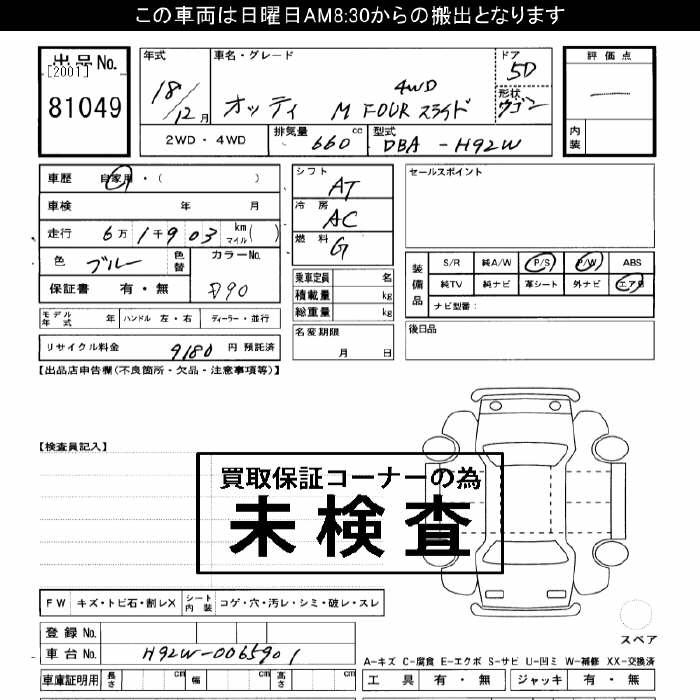 この車両は日曜日AM8:30からの搬出となります
出品No.
[2001]
81049
年式 車名・グレード ドア
18/12月 オッティ 4WD M FOUR スライド 5D
形状 ワゴン
2WD・4WD 排気量 660cc 型式 DBA-H92W
評価点
内装
車歴 自家用・( )
車検 年 月
走行 6万1千903 km マイル( )
色 ブルー 色替 カラーNo.
保証書 有・無 B90
シフト AT
冷房 AC
燃料 G
セールスポイント
装備品 S/R 純A/W P/S P/W ABS
純TV 純ナビ 革シート 外ナビ エアB
ナビ型番:
乗車定員 名
積載量 kg
総重量 kg
モデル年式 年 ハンドル 左・右 ディーラー・並行
名変期限 月 日
後日品
リサイクル料金 9180 円 預託済
【出品店申告欄(不良箇所・欠品・注意事項等)】
【検査員記入】
買取保証コーナーの為
未検査
FW キズ・トビ石・割レX シート内装 コゲ・穴・汚レ・シミ・破レ・スレ
登録No.
車台No. H92W-0065901
スペア
A-キズ C-腐食 E-エクボ S-サビ U-凹ミ W-補修 XX-交換済
車庫証明用 長さ cm 幅 cm 高さ cm
工具 有・無 ジャッキ 有・無